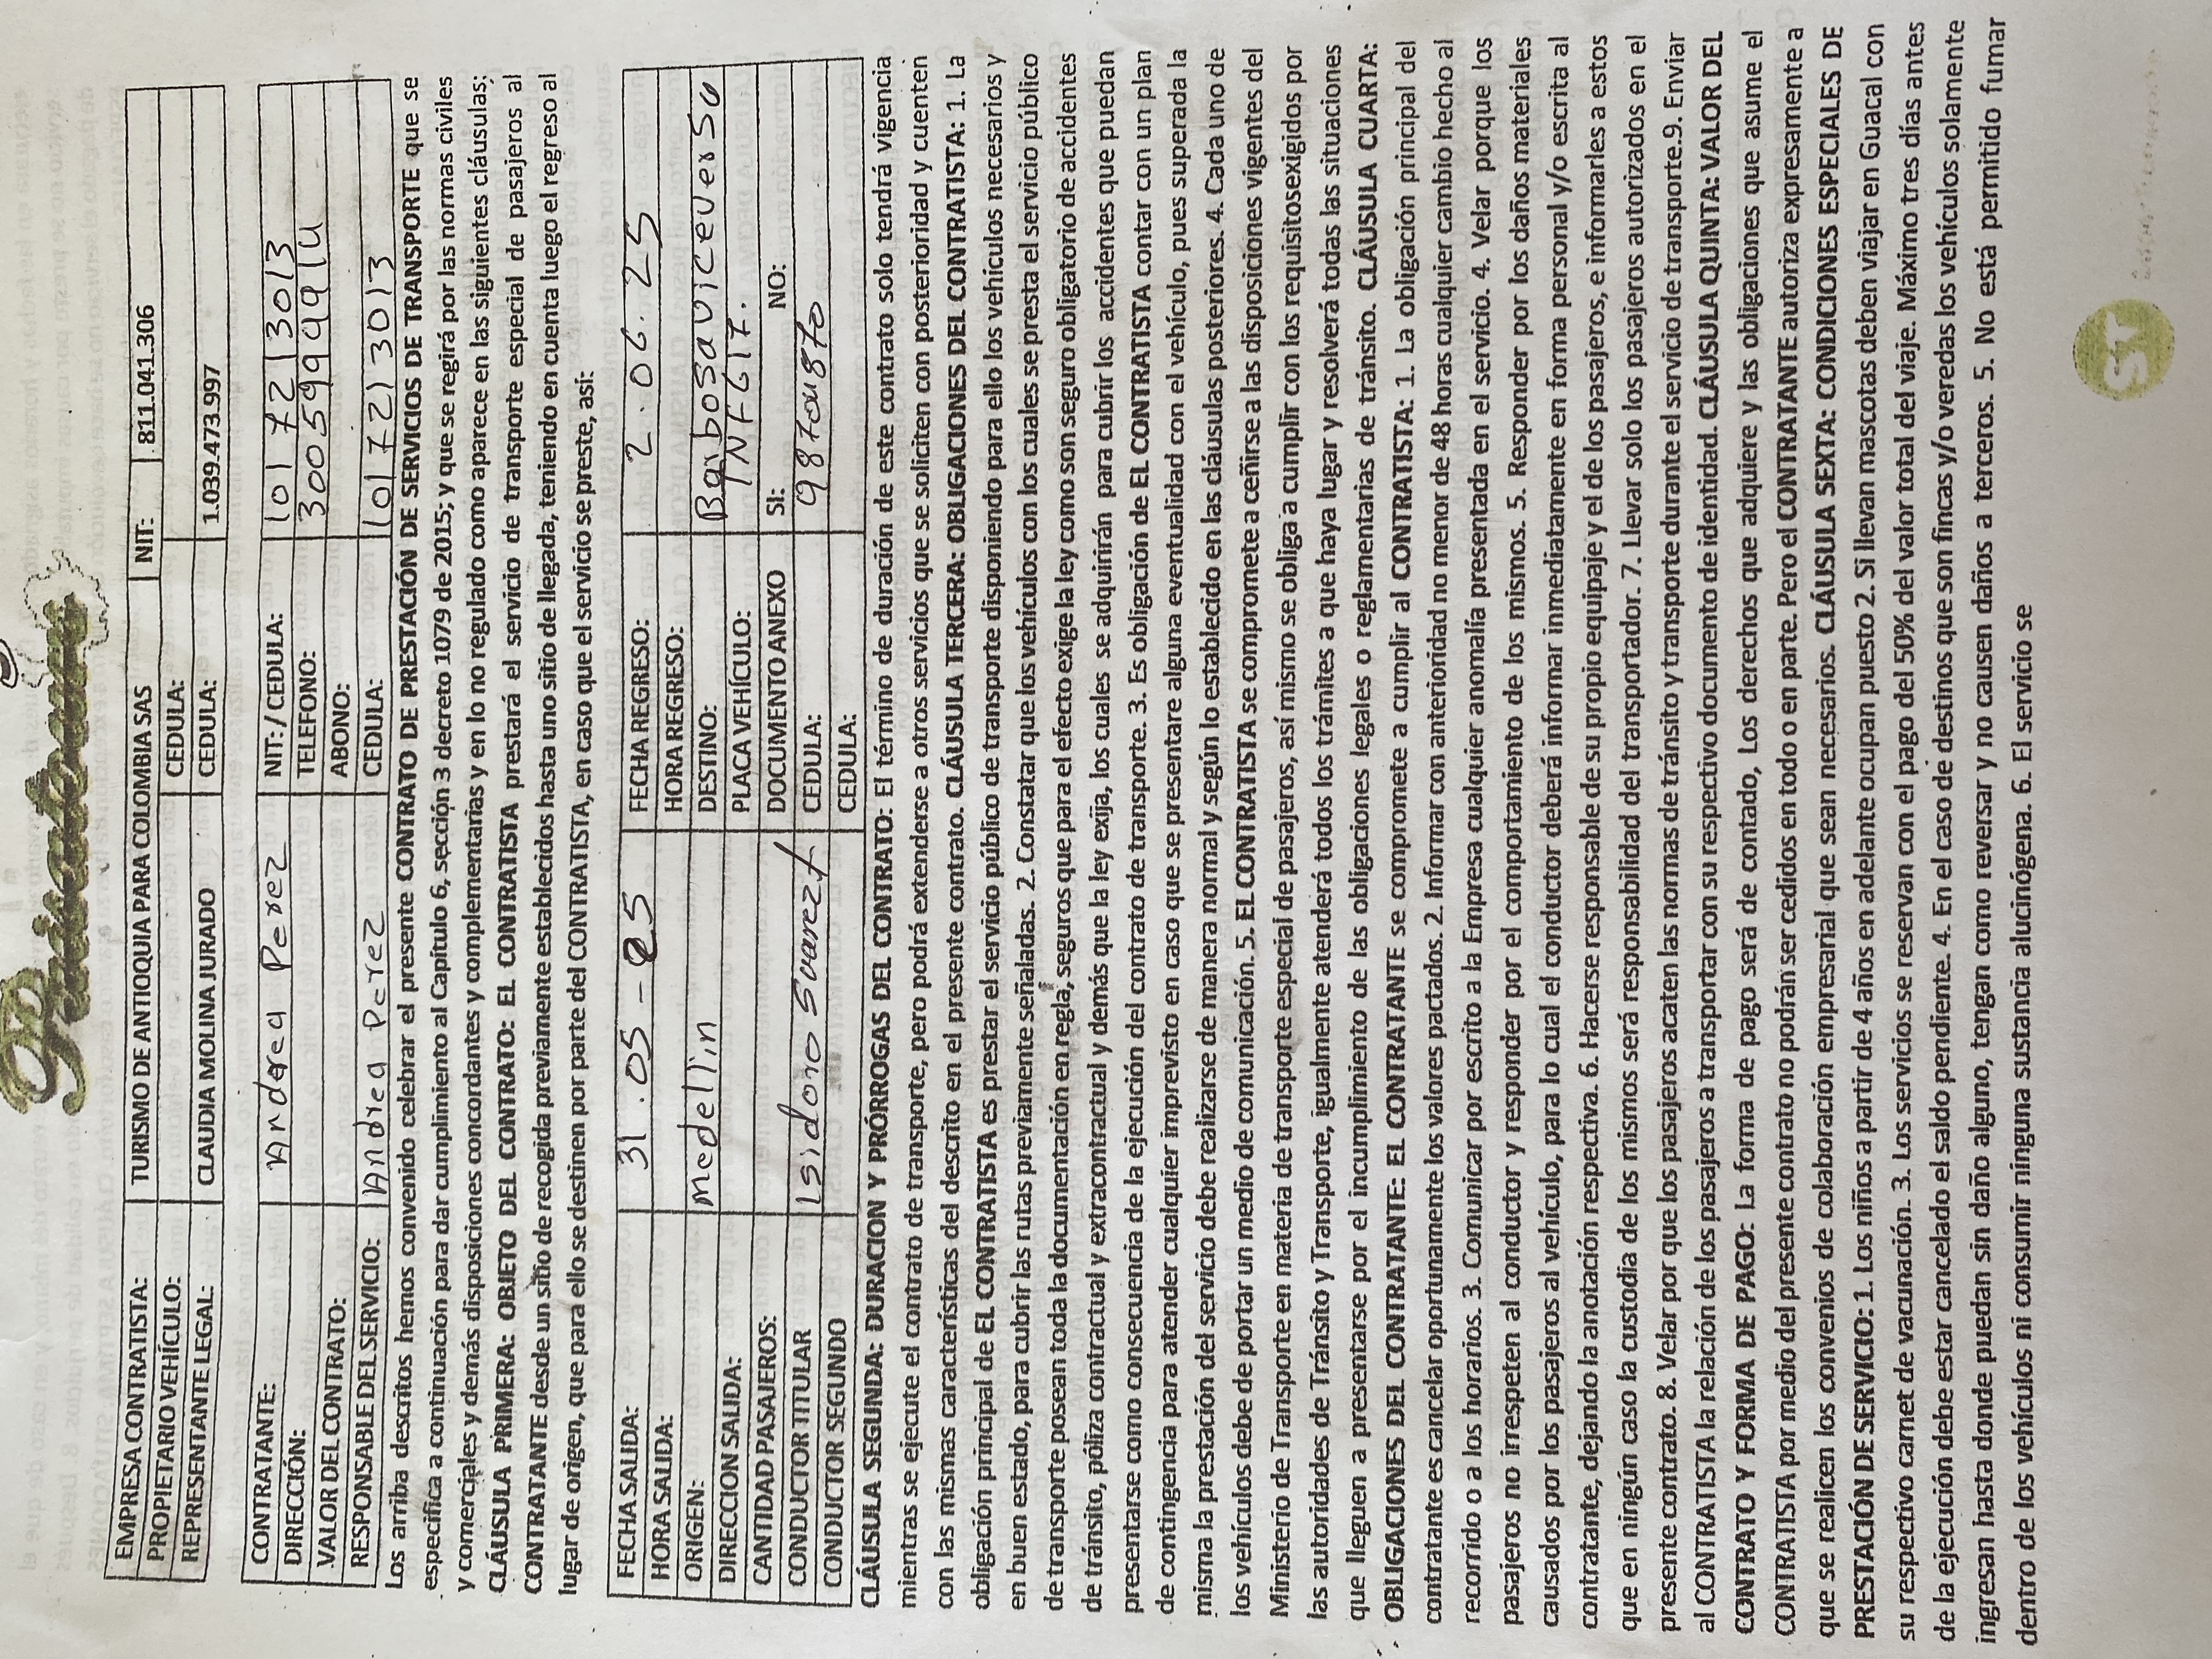 EMPRESA CONTRATISTA: TURISMO DE ANTIOQUIA PARA COLOMBIA SAS NIT: 811.041.306
PROPIETARIO VEHÍCULO: CEDULA:
REPRESENTANTE LEGAL: CLAUDIA MOLINA JURADO CEDULA: 1.039.473.997
CONTRATANTE: Andrea Perez NIT: / CEDULA: 1017213013
DIRECCIÓN: TELEFONO:
VALOR DEL CONTRATO: ABONO:
RESPONSABLE DEL SERVICIO: Andrea Perez CEDULA: 1017213013
Los arriba descritos hemos convenido celebrar el presente CONTRATO DE PRESTACIÓN DE SERVICIOS DE TRANSPORTE que se
especifica a continuación para dar cumplimiento al Capítulo 6, sección 3 decreto 1079 de 2015; y que se regirá por las normas civiles
y comerciales y demás disposiciones concordantes y complementarias y en lo no regulado como aparece en las siguientes cláusulas:
CLÁUSULA PRIMERA: OBJETO DEL CONTRATO: EL CONTRATISTA prestará el servicio de transporte especial de pasajeros al
CONTRATANTE desde un sitio de recogida previamente establecidos hasta uno sitio de llegada, teniendo en cuenta luego el regreso al
lugar de origen, que para ello se destinen por parte del CONTRATISTA, en caso que el servicio se preste, así:
FECHA SALIDA: 31.05-25 FECHA REGRESO: 2.06.25
HORA SALIDA: HORA REGRESO:
ORIGEN: medellin DESTINO: Barbosa viceverso
DIRECCION SALIDA: PLACA VEHÍCULO: TNF617.
CANTIDAD PASAJEROS: DOCUMENTO ANEXO SI: NO:
CONDUCTOR TITULAR Isidoro Suarez CEDULA:
CONDUCTOR SEGUNDO CEDULA:
CLÁUSULA SEGUNDA: DURACION Y PRÓRROGAS DEL CONTRATO: El término de duración de este contrato solo tendrá vigencia
mientras se ejecute el contrato de transporte, pero podrá extenderse a otros servicios que se soliciten con posterioridad y cuenten
con las mismas características del descrito en el presente contrato. CLÁUSULA TERCERA: OBLIGACIONES DEL CONTRATISTA: 1. La
obligación principal de EL CONTRATISTA es prestar el servicio público de transporte disponiendo para ello los vehículos necesarios y
en buen estado, para cubrir las rutas previamente señaladas. 2. Constatar que los vehículos con los cuales se presta el servicio público
de transporte posean toda la documentación en regla, seguros que para el efecto exige la ley como son seguro obligatorio de accidentes
de tránsito, póliza contractual y extracontractual y demás que la ley exija, los cuales se adquirirán para cubrir los accidentes que puedan
presentarse como consecuencia de la ejecución del contrato de transporte. 3. Es obligación de EL CONTRATISTA contar con un plan
de contingencia para atender cualquier imprevisto en caso que se presentare alguna eventualidad con el vehículo, pues superada la
misma la prestación del servicio debe realizarse de manera normal y según lo establecido en las cláusulas posteriores. 4. Cada uno de
los vehículos debe de portar un medio de comunicación. 5. EL CONTRATISTA se compromete a ceñirse a las disposiciones vigentes del
Ministerio de Transporte en materia de transporte especial de pasajeros, así mismo se obliga a cumplir con los requisitosexigidos por
las autoridades de Tránsito y Transporte, igualmente atenderá todos los trámites a que haya lugar y resolverá todas las situaciones
que lleguen a presentarse por el incumplimiento de las obligaciones legales o reglamentarias de tránsito. CLÁUSULA CUARTA:
OBLIGACIONES DEL CONTRATANTE: EL CONTRATANTE se compromete a cumplir al CONTRATISTA: 1. La obligación principal del
contratante es cancelar oportunamente los valores pactados. 2. Informar con anterioridad no menor de 48 horas cualquier cambio hecho al
recorrido o a los horarios. 3. Comunicar por escrito a la Empresa cualquier anomalía presentada en el servicio. 4. Velar porque los
pasajeros no irrespeten al conductor y responder por el comportamiento de los mismos. 5. Responder por los daños materiales
causados por los pasajeros al vehículo, para lo cual el conductor deberá informar inmediatamente en forma personal y/o escrita al
contratante, dejando la anotación respectiva. 6. Hacerse responsable de su propio equipaje y el de los pasajeros, e informarles a estos
que en ningún caso la custodia de los mismos será responsabilidad del transportador. 7. Llevar solo los pasajeros autorizados en el
presente contrato. 8. Velar por que los pasajeros acaten las normas de tránsito y transporte durante el servicio de transporte.9. Enviar
al CONTRATISTA la relación de los pasajeros a transportar con su respectivo documento de identidad. CLÁUSULA QUINTA: VALOR DEL
CONTRATO Y FORMA DE PAGO: La forma de pago será de contado, Los derechos que adquiere y las obligaciones que asume el
CONTRATISTA por medio del presente contrato no podrán ser cedidos en todo o en parte. Pero el CONTRATANTE autoriza expresamente a
que se realicen los convenios de colaboración empresarial que sean necesarios. CLÁUSULA SEXTA: CONDICIONES ESPECIALES DE
PRESTACIÓN DE SERVICIO: 1. Los niños a partir de 4 años en adelante ocupan puesto 2. Si llevan mascotas deben viajar en Guacal con
su respectivo carnet de vacunación. 3. Los servicios se reservan con el pago del 50% del valor total del viaje. Máximo tres días antes
de la ejecución debe estar cancelado el saldo pendiente. 4. En el caso de destinos que son fincas y/o veredas los vehículos solamente
ingresan hasta donde puedan sin daño alguno, tengan como reversar y no causen daños a terceros. 5. No está permitido fumar
dentro de los vehículos ni consumir ninguna sustancia alucinógena. 6. El servicio se
ST